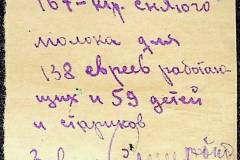 167 литр. снятого
молока для
138 евреев работаю-
щих и 59 детей
и стариков